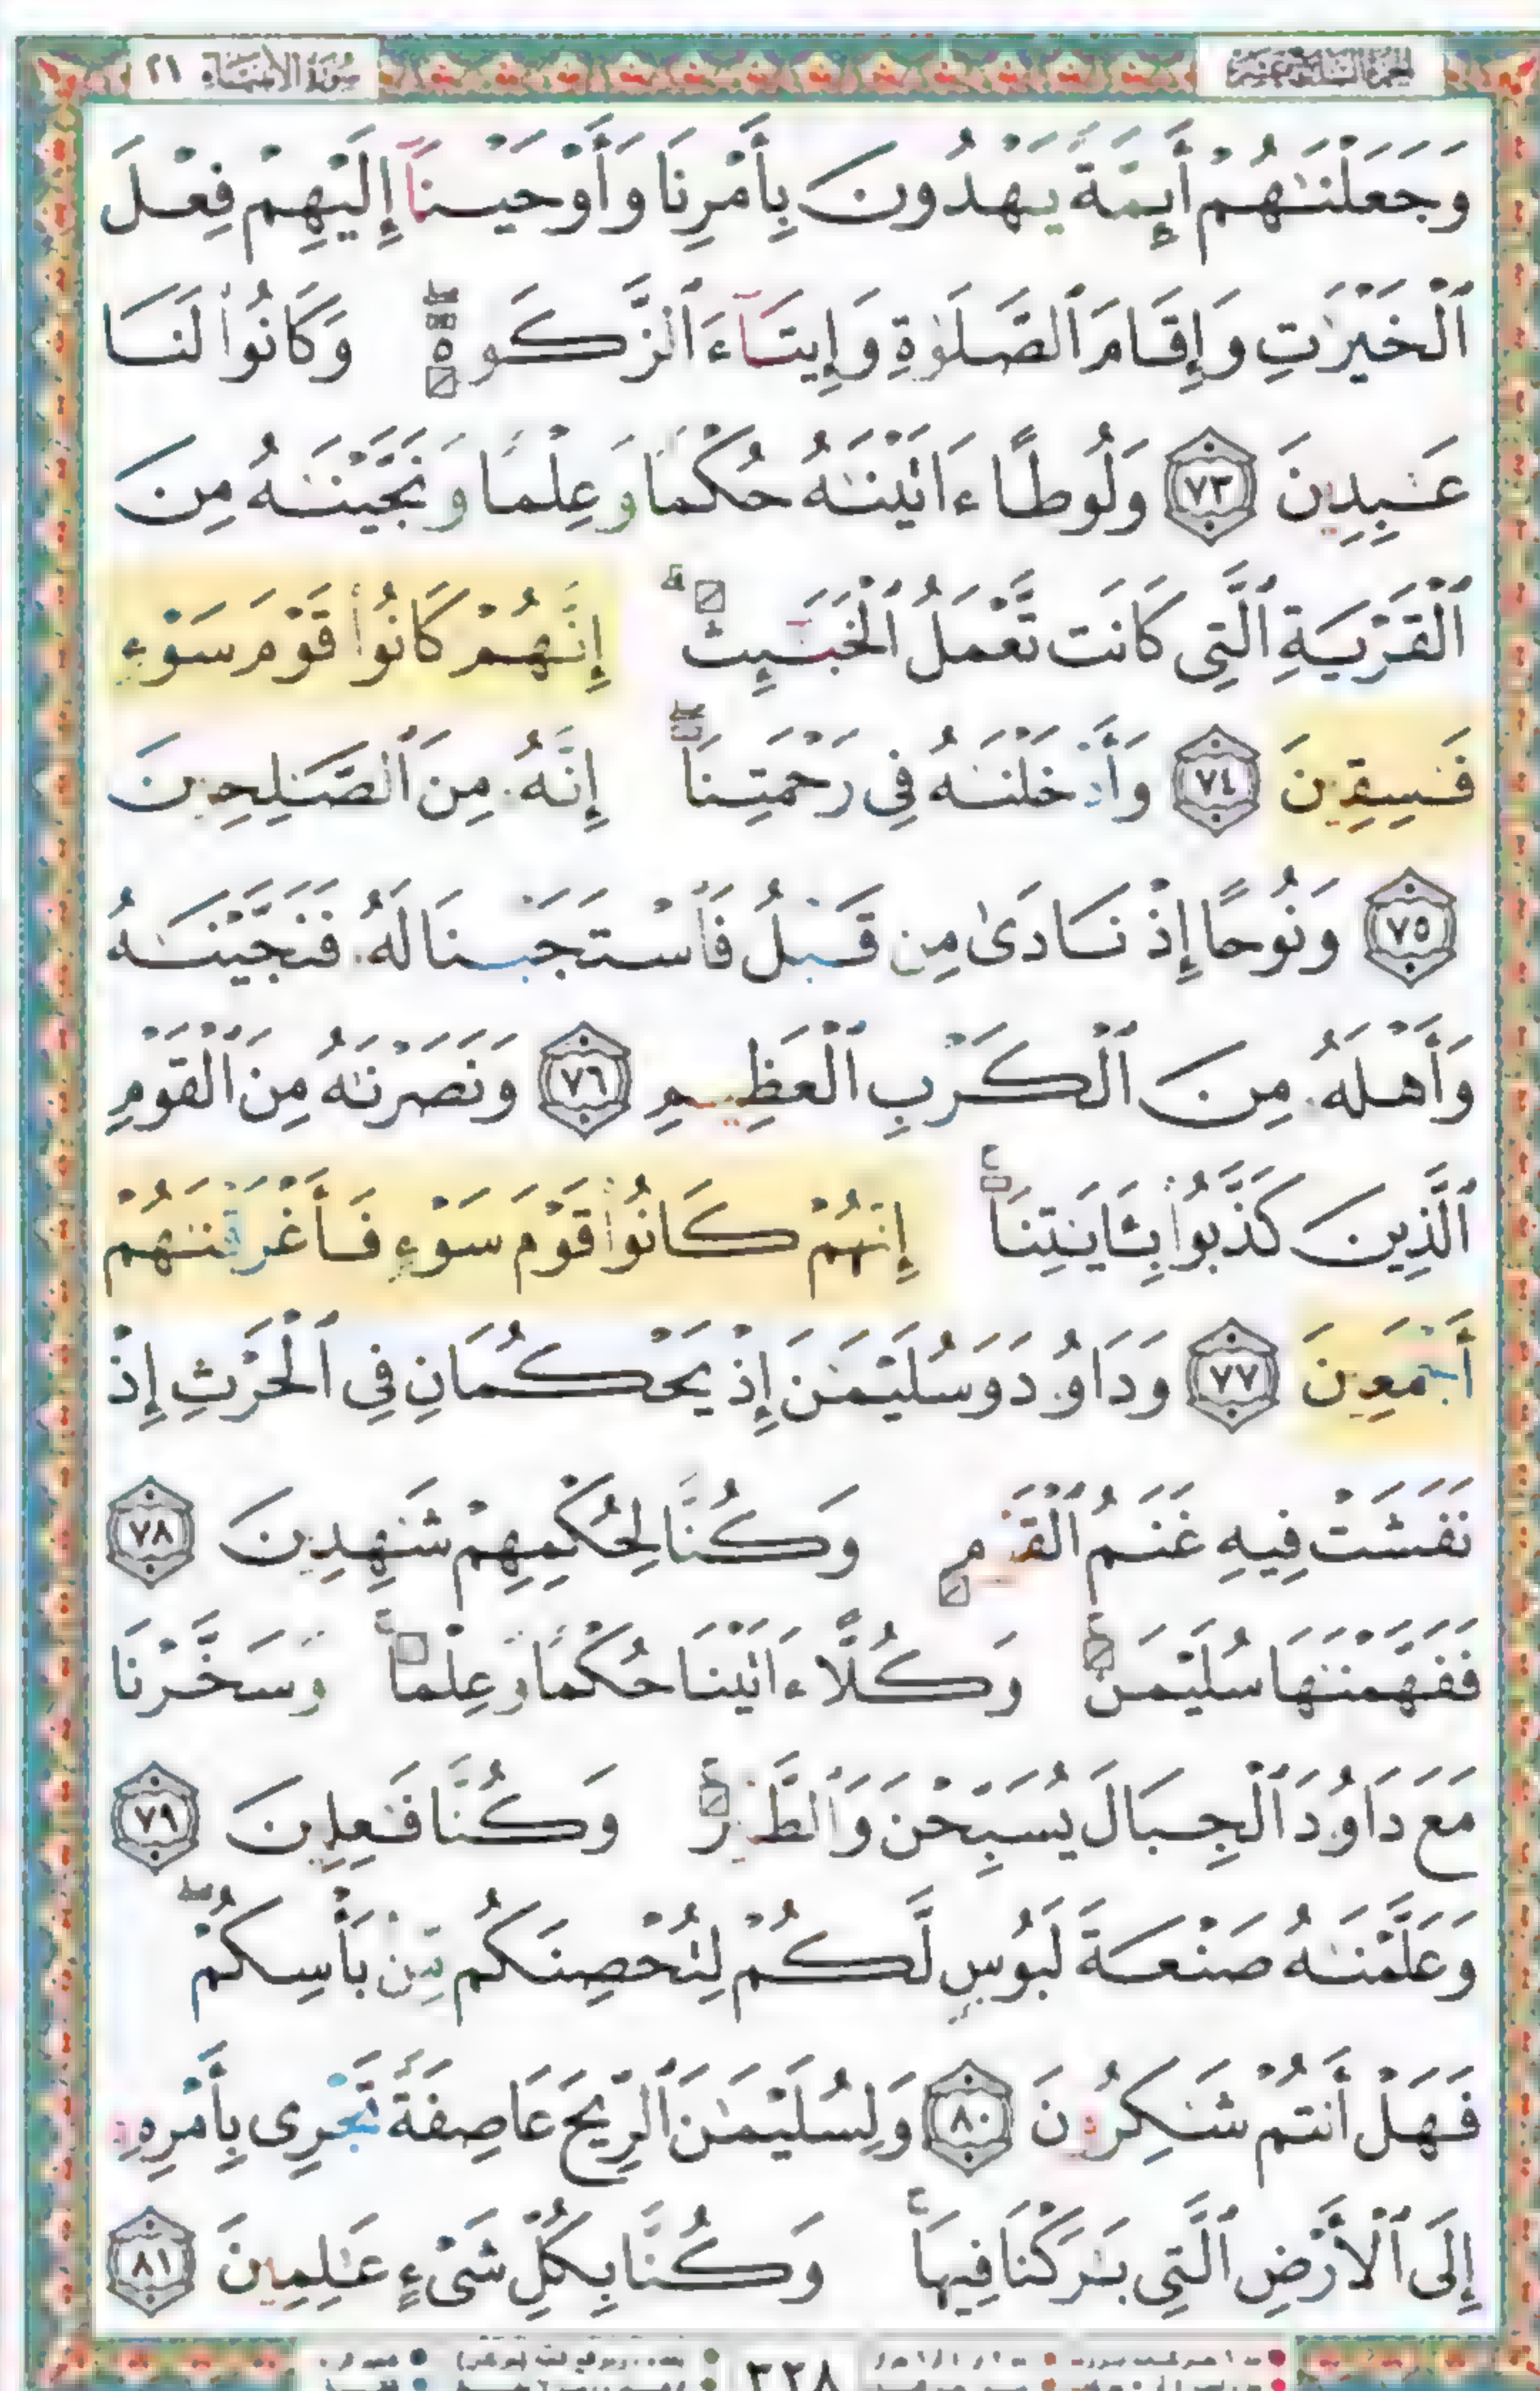 سُورَةُ الأَنبِيَاء ٢١
وَجَعَلْنَـٰهُمْ أَئِمَّةً يَهْدُونَ بِأَمْرِنَا وَأَوْحَيْنَآ إِلَيْهِمْ فِعْلَ
ٱلْخَيْرَٰتِ وَإِقَامَ ٱلصَّلَوٰةِ وَإِيتَآءَ ٱلزَّكَو وَكَانُوا۟ لَنَا
عَـٰبِدِينَ ٧٣ وَلُوطًا ءَاتَيْنَـٰهُ حُكْمًا وَعِلْمًا وَنَجَّيْنَـٰهُ مِنَ
ٱلْقَرْيَةِ ٱلَّتِى كَانَت تَّعْمَلُ ٱلْخَبَـٰٓئِث إِنَّهُمْ كَانُوا۟ قَوْمَ سَوْءٍ
فَـٰسِقِينَ ٧٤ وَأَدْخَلْنَـٰهُ فِى رَحْمَتِنَآ إِنَّهُۥ مِنَ ٱلصَّـٰلِحِينَ
٧٥ وَنُوحًا إِذْ نَادَىٰ مِن قَبْلُ فَٱسْتَجَبْنَا لَهُۥ فَنَجَّيْنَـٰهُ
وَأَهْلَهُۥ مِنَ ٱلْكَرْبِ ٱلْعَظِيمِ ٧٦ وَنَصَرْنَـٰهُ مِنَ ٱلْقَوْمِ
ٱلَّذِينَ كَذَّبُوا۟ بِـَٔايَـٰتِنَآ إِنَّهُمْ كَانُوا۟ قَوْمَ سَوْءٍ فَأَغْرَقْنَـٰهُمْ
أَجْمَعِينَ ٧٧ وَدَاوُۥدَ وَسُلَيْمَـٰنَ إِذْ يَحْكُمَانِ فِى ٱلْحَرْثِ إِذْ
نَفَشَتْ فِيهِ غَنَمُ ٱلْقَوْمِ وَكُنَّا لِحُكْمِهِمْ شَـٰهِدِينَ ٧٨
فَفَهَّمْنَـٰهَا سُلَيْمَـٰنَ ۚ وَكُلًّا ءَاتَيْنَا حُكْمًا وَعِلْمًا ۚ وَسَخَّرْنَا
مَعَ دَاوُۥدَ ٱلْجِبَالَ يُسَبِّحْنَ وَٱلطَّيْرَ ۚ وَكُنَّا فَـٰعِلِينَ ٧٩
وَعَلَّمْنَـٰهُ صَنْعَةَ لَبُوسٍ لَّكُمْ لِتُحْصِنَكُم مِّنۢ بَأْسِكُمْ ۖ
فَهَلْ أَنتُمْ شَـٰكِرُونَ ٨٠ وَلِسُلَيْمَـٰنَ ٱلرِّيحَ عَاصِفَةً تَجْرِى بِأَمْرِهِۦٓ
إِلَى ٱلْأَرْضِ ٱلَّتِى بَـٰرَكْنَا فِيهَا ۚ وَكُنَّا بِكُلِّ شَىْءٍ عَـٰلِمِينَ ٨١
٣٢٨